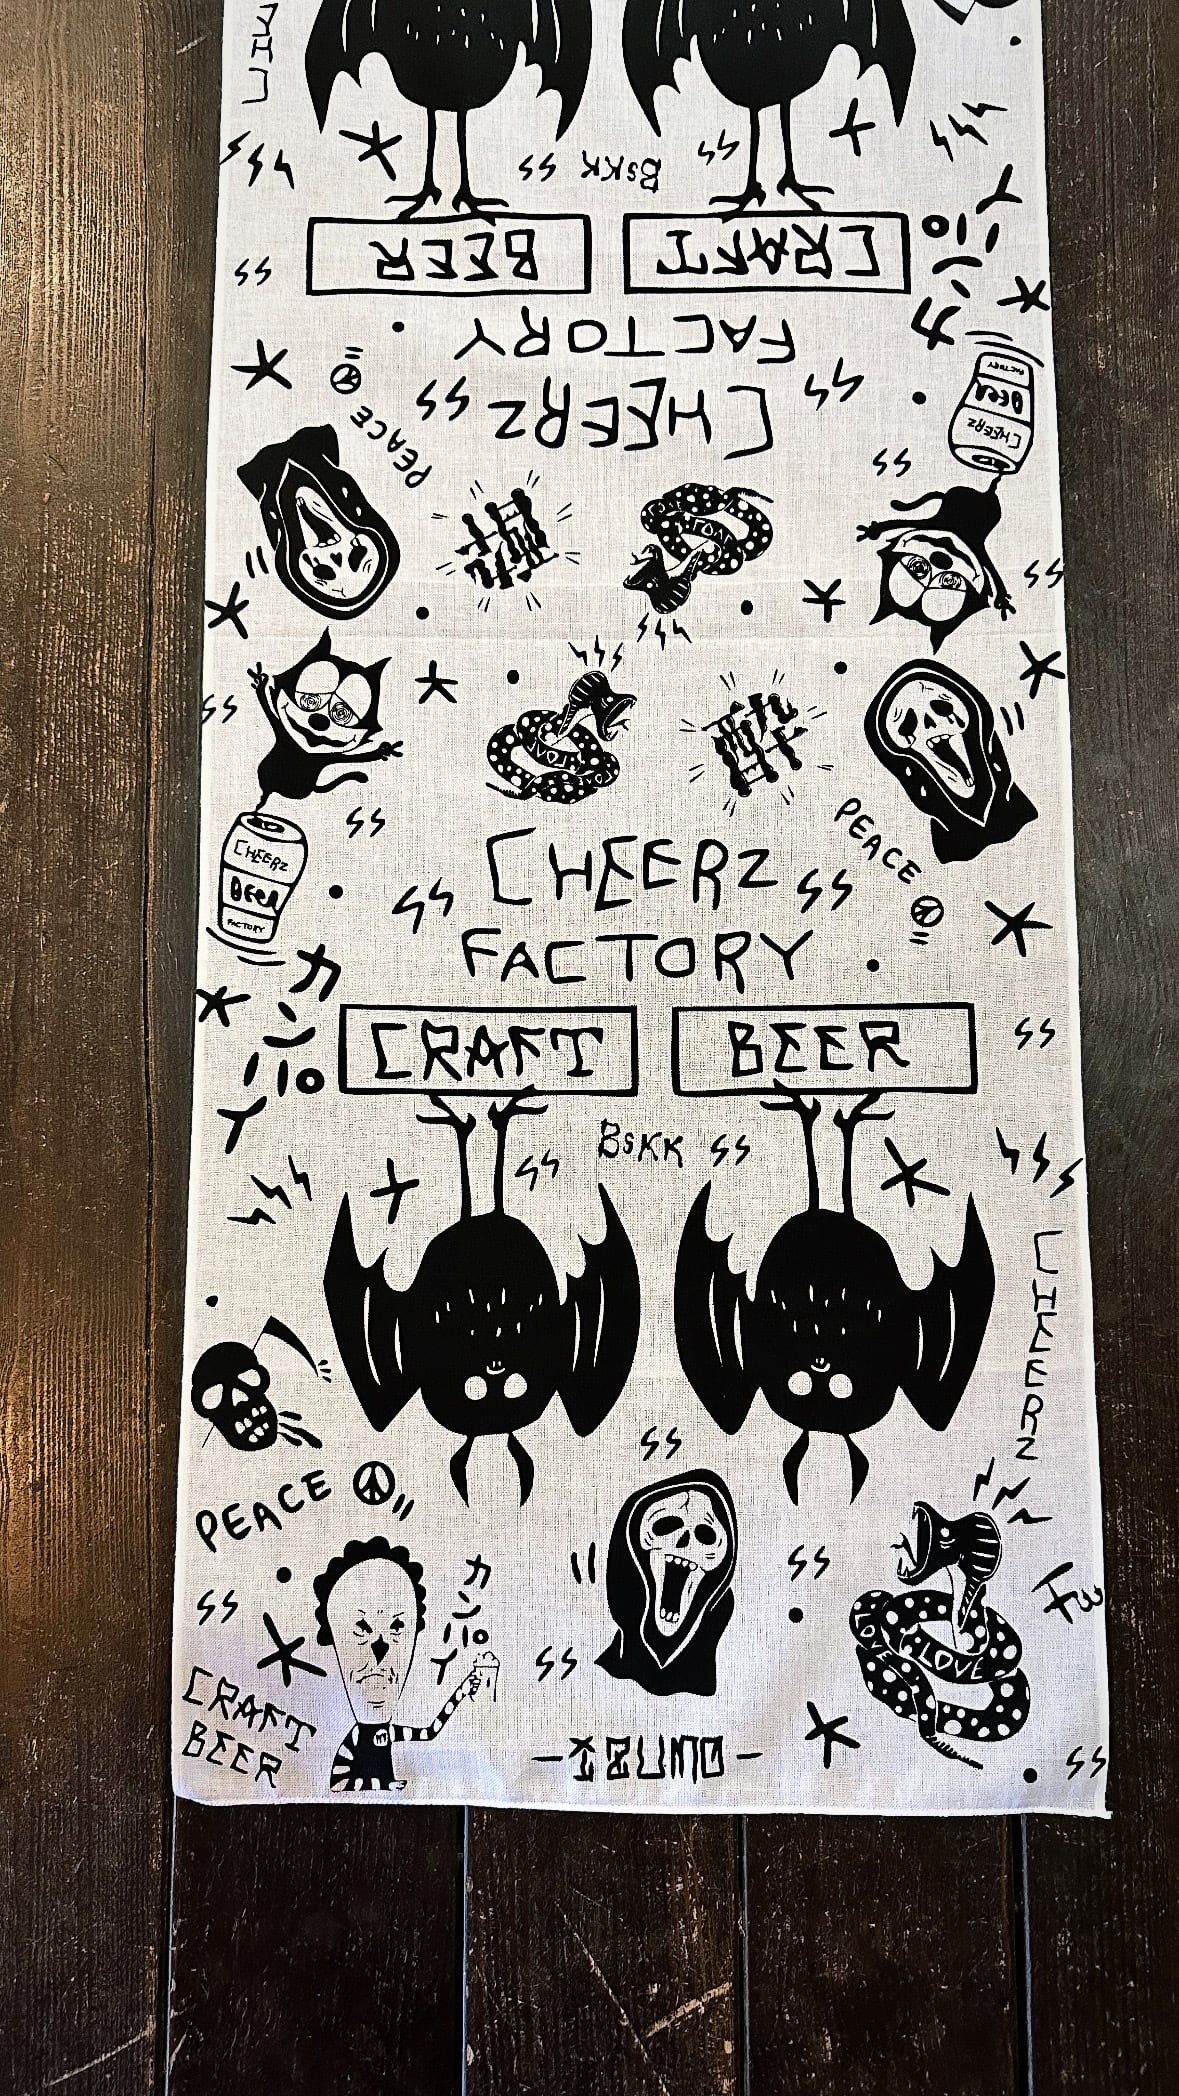 BSKK
BEER
CRAFT
カンパイ
FACTORY
CHEERZ
PEACE
CHEERZ
BEER
FACTORY
LOVE
LOVE
CHEERZ
BEER
FACTORY
PEACE
CHEERZ
FACTORY
カンパイ
CRAFT
BEER
BSKK
CHEERZ
PEACE
カンパイ
LOVE
CRAFT
BEER
-IZUMO-